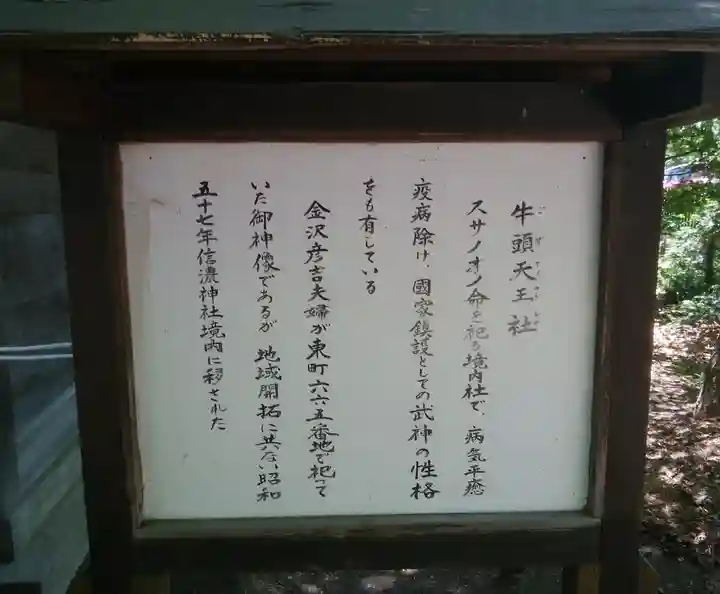 牛頭天王社
スサノオノ命を祀る境内社で、病気平癒
疫病除け、國家鎮護としての武神の性格
をも有している
金沢彦吉夫婦が東町六六五番地で祀って
いた御神像であるが 地域開拓に共ない昭和
五十七年信濃神社境内に移された